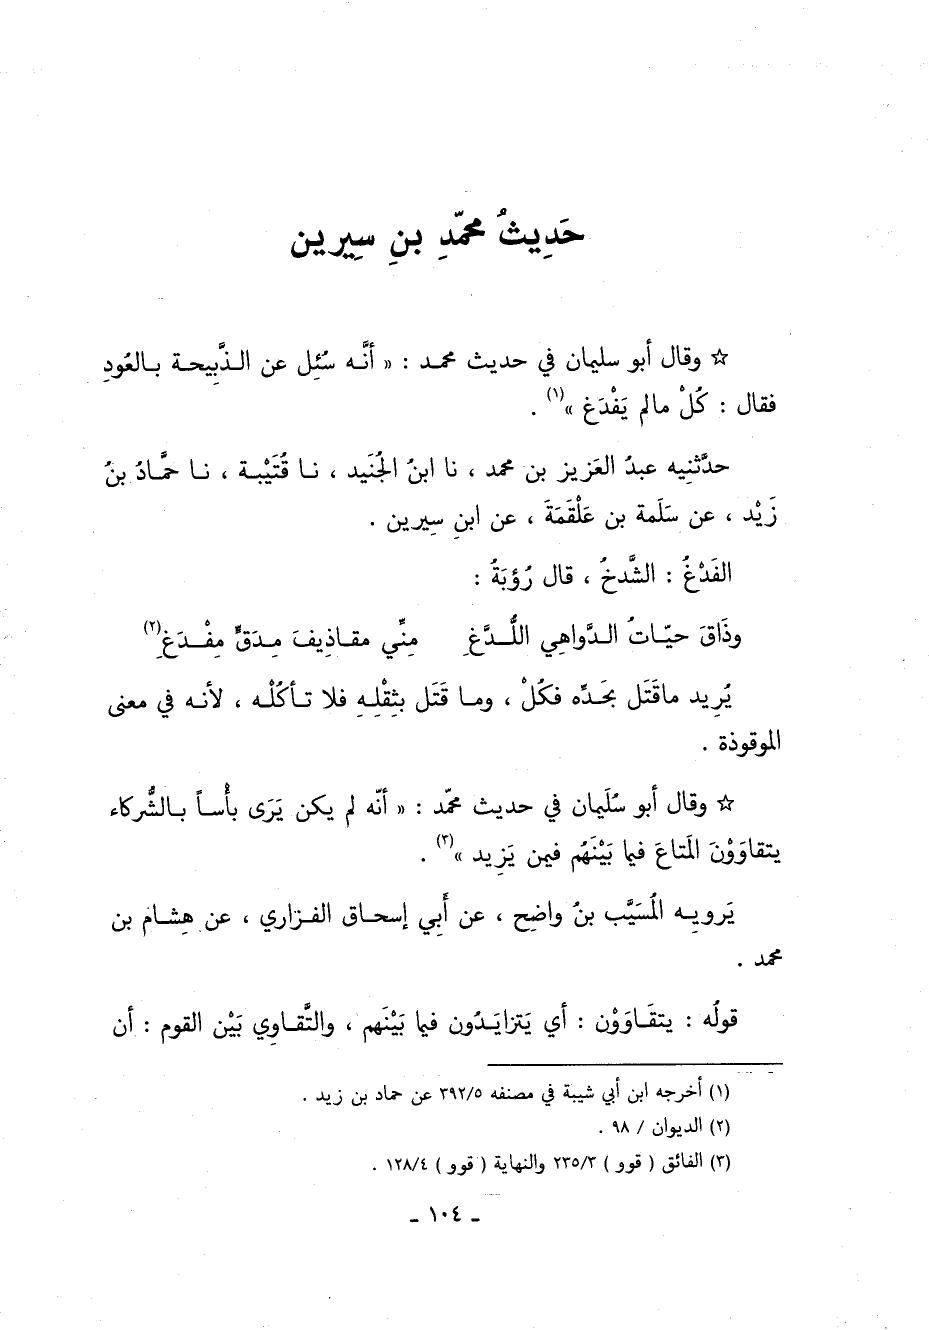 حَدِيثُ محمّدِ بنِ سِيرين
☆ وقال أبو سليمان في حديث محمد : « أنَّه سُئِل عن الذَّبِيحة بالعُودِ
فقال : كُلْ مالم يَفْدَغ »(١) .
حدَّثنِيه عبدُ العَزيز بن محمد ، نا ابنُ الجُنَيد ، نا قُتَيْبة ، نا حمَّادُ بنُ
زَيْد ، عن سَلَمة بن عَلْقَمَةَ ، عن ابنِ سِيرين .
الفَدْغُ : الشَّدخُ ، قال رُؤبَةُ :
وذَاقَ حيّاتُ الدَّواهِي اللُّدَّغِ مِنِّي مقاذِيفَ مِدَقٍّ مِفْدَغِ(٢)
يُرِيد ماقَتَل بحَدِّه فكُلْ ، وما قَتَل بثِقْلِهِ فلا تأكُلْه ، لأنه في معنى
الموقوذة .
☆ وقال أبو سُلَيمان في حديث محمّد : « أنّه لم يكن يَرَى بأْساً بالشُّركاء
يتقاوَوْنَ المَتاعَ فيما بَيْنَهُم فيمن يَزِيد »(٣) .
يَرويه المُسَيَّب بنُ واضِح ، عن أَبِي إسحاق الفزاري ، عن هِشام بن
محمد .
قولُه : يتقَاوَوْن : أي يَتزايَدُون فيما بَيْنَهم ، والتَّقاوِي بَيْن القوم : أن
(١) أخرجه ابن أبي شيبة في مصنفه ٣٩٢/٥ عن حماد بن زيد .
(٢) الديوان / ٩٨ .
(٣) الفائق ( قوو ) ٢٣٥/٣ والنهاية ( قوو ) ١٢٨/٤ .
- ١٠٤ -